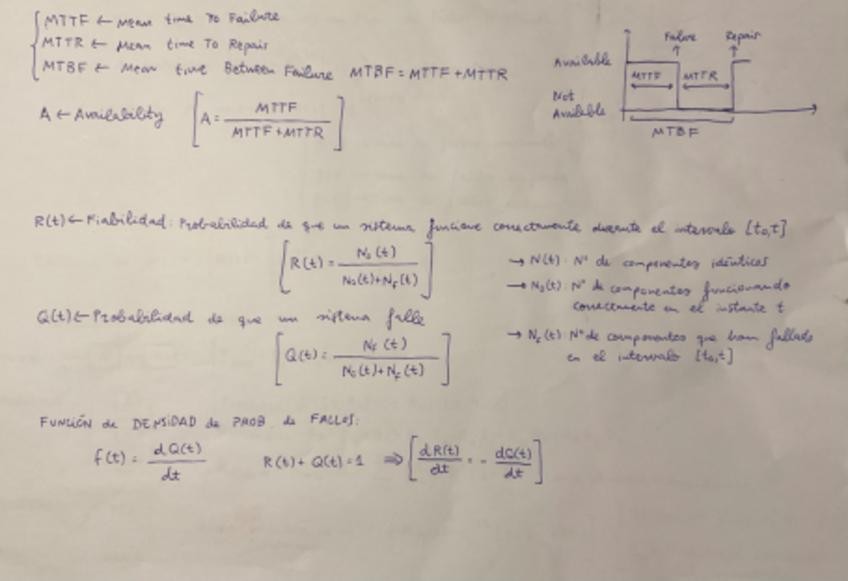 MTTF ← Mean time To Failure
MTTR ← Mean time To Repair
MTBF ← Mean time Between Failure MTBF = MTTF + MTTR
A ← Availability [A = MTTF / (MTTF + MTTR)]
Failure Repair
Available
MTTF MTTR
Not
Available
MTBF
R(t) ← Fiabilidad: Probabilidad de que un sistema funcione correctamente durante el intervalo [t₀,t]
[R(t) = N₀(t) / (N₀(t) + N_f(t))]
→ N(t): Nº de componentes idénticos
→ N₀(t): Nº de componentes funcionando
correctamente en el instante t
Q(t) ← Probabilidad de que un sistema falle
[Q(t) = N_f(t) / (N₀(t) + N_f(t))]
→ N_f(t): Nº de componentes que han fallado
en el intervalo [t₀,t]
FUNCIÓN de DENSIDAD de PROB. de FALLOS:
f(t) = dQ(t)/dt R(t) + Q(t) = 1 ⇒ [dR(t)/dt = - dQ(t)/dt]